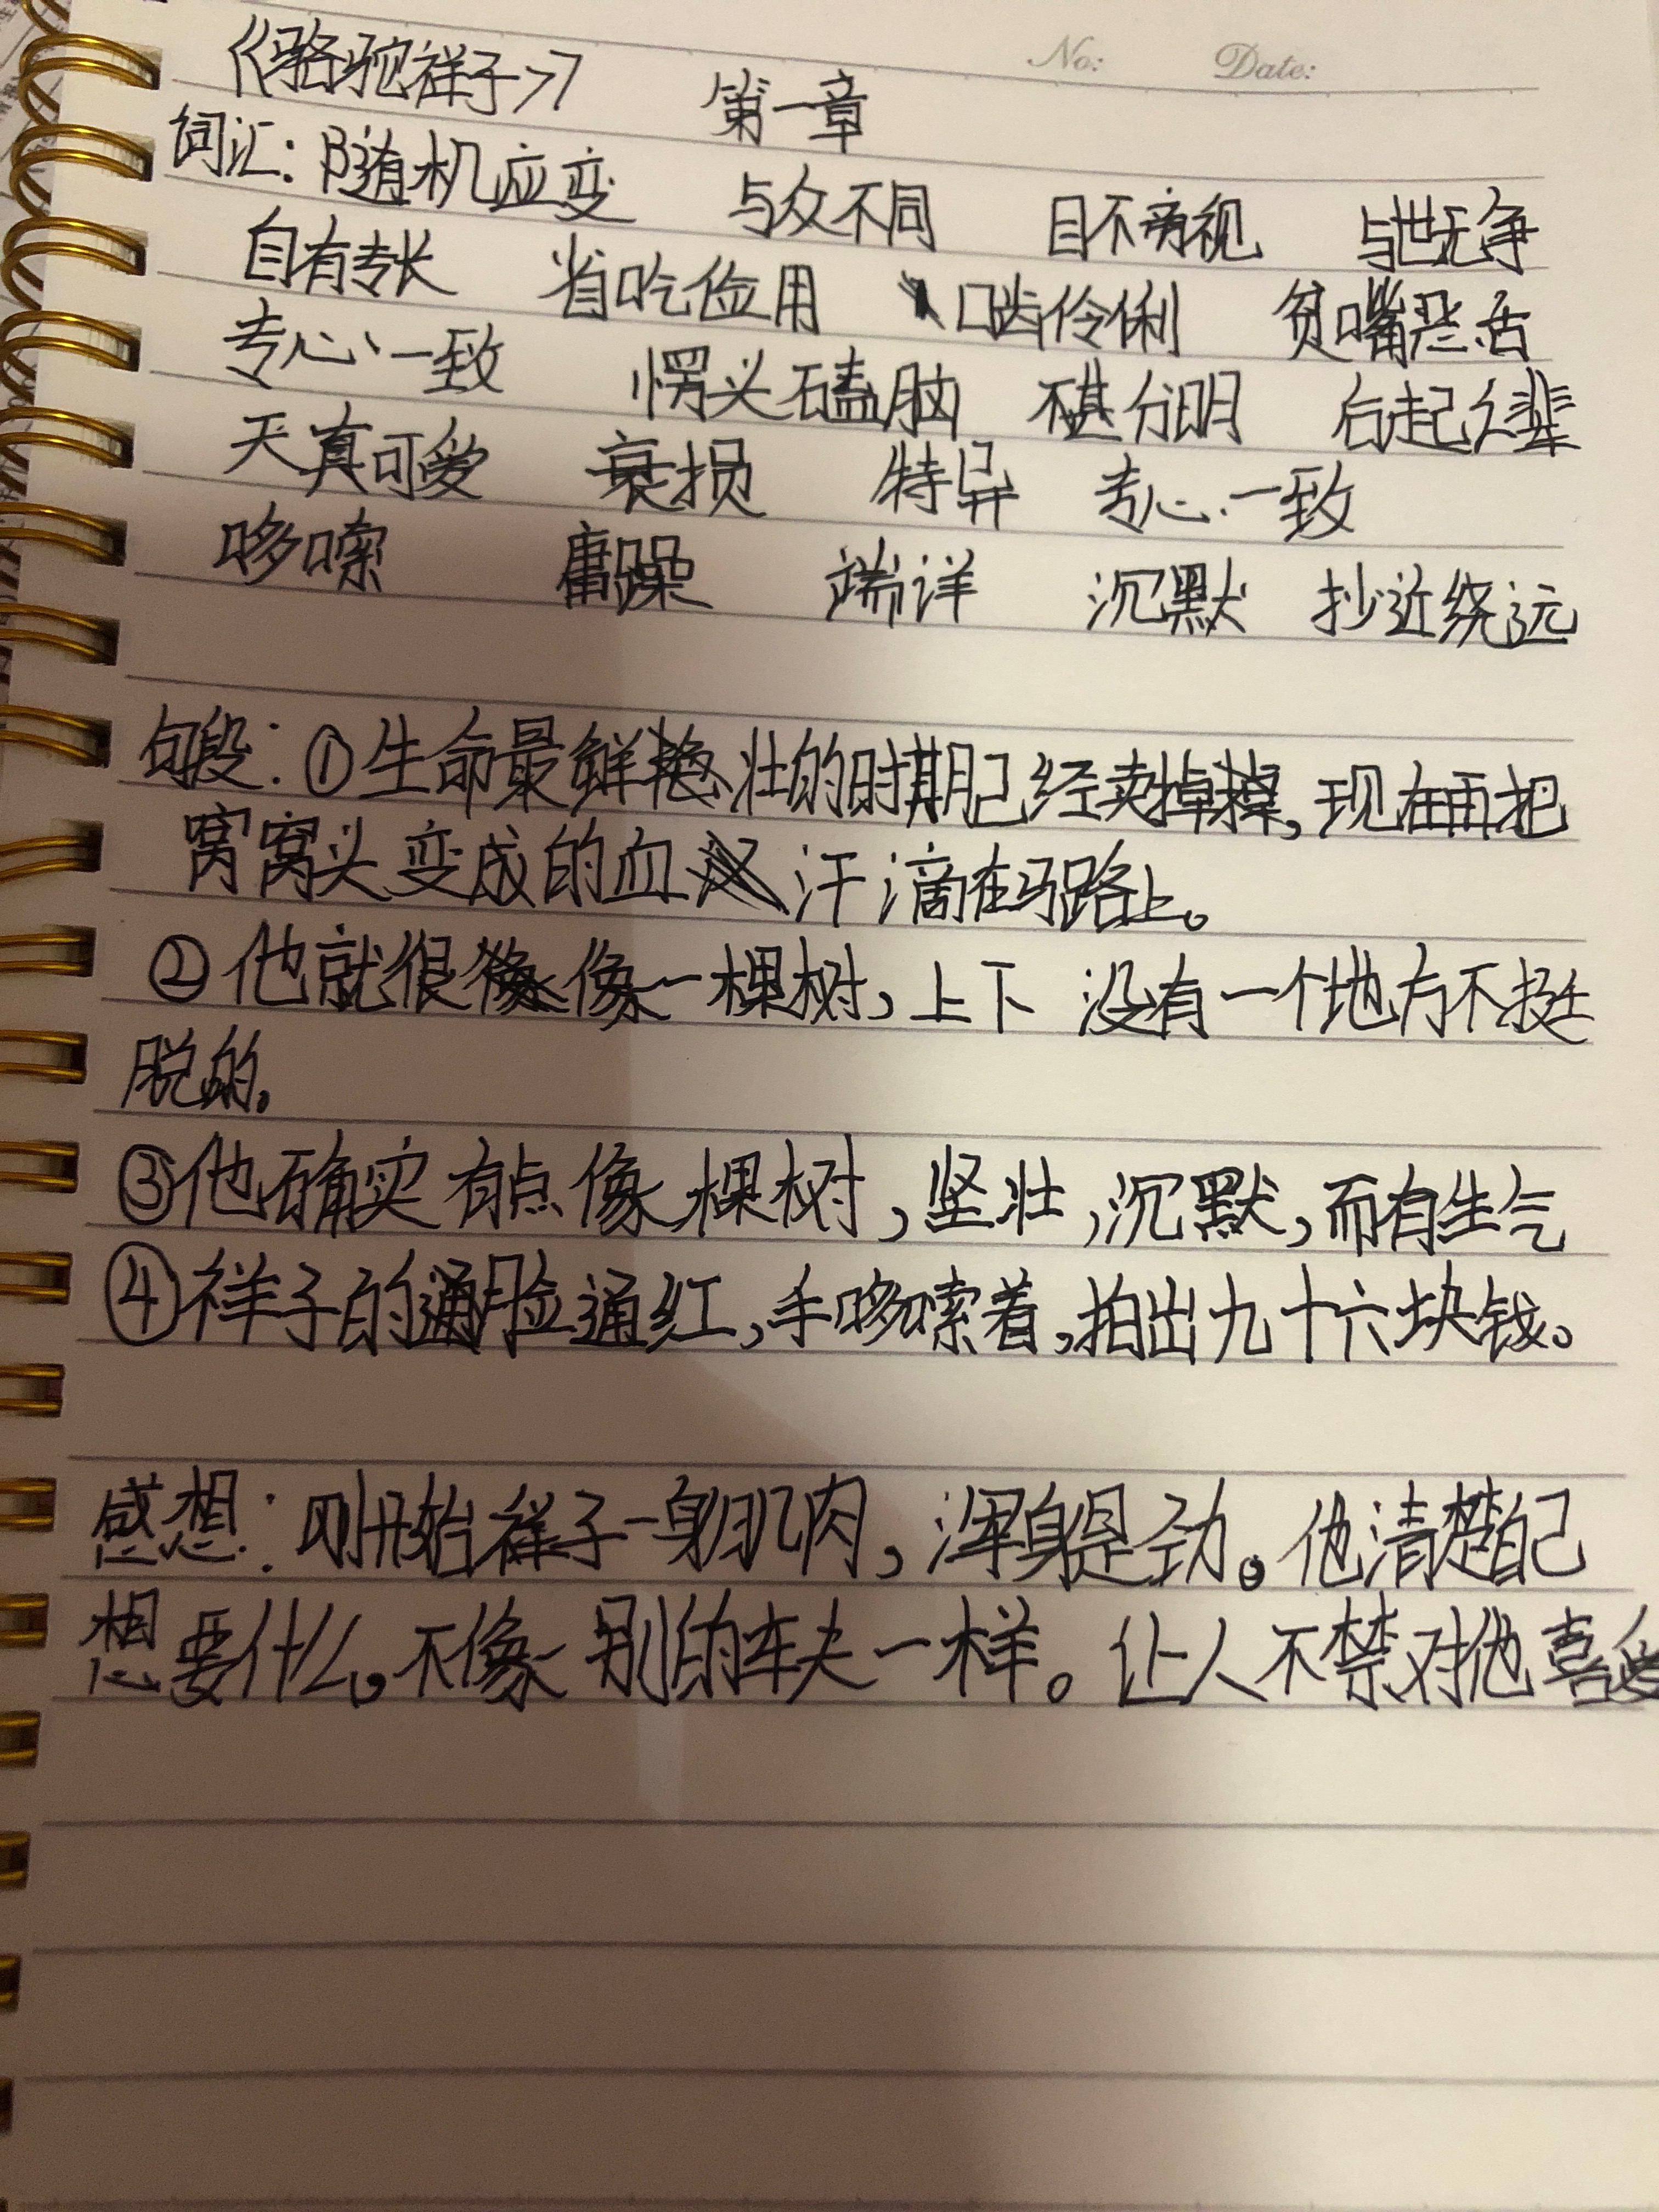 《骆驼祥子》 第一章 No: Date:
词汇：随机应变 与众不同 目不旁视 与世无争
自有专长 省吃俭用 口齿伶俐 贫嘴恶舌
专心一致 愣头磕脑 不甚分明 后起之辈
天真可爱 衰损 特异 专心一致
哆嗦 庸躁 端详 沉默 抄近绕远
句段：①生命最鲜壮的时期已经卖掉，现在再把
窝窝头变成的血汗滴在马路上。
②他就很像一棵树，上下没有一个地方不挺
脱的。
③他确实有点像棵树，坚壮，沉默，而有生气
④祥子的脸通红，手哆嗦着，拍出九十六块钱。
感想：刚开始祥子一身肌肉，浑身是劲。他清楚自己
想要什么。不像别的车夫一样。让人不禁对他喜爱